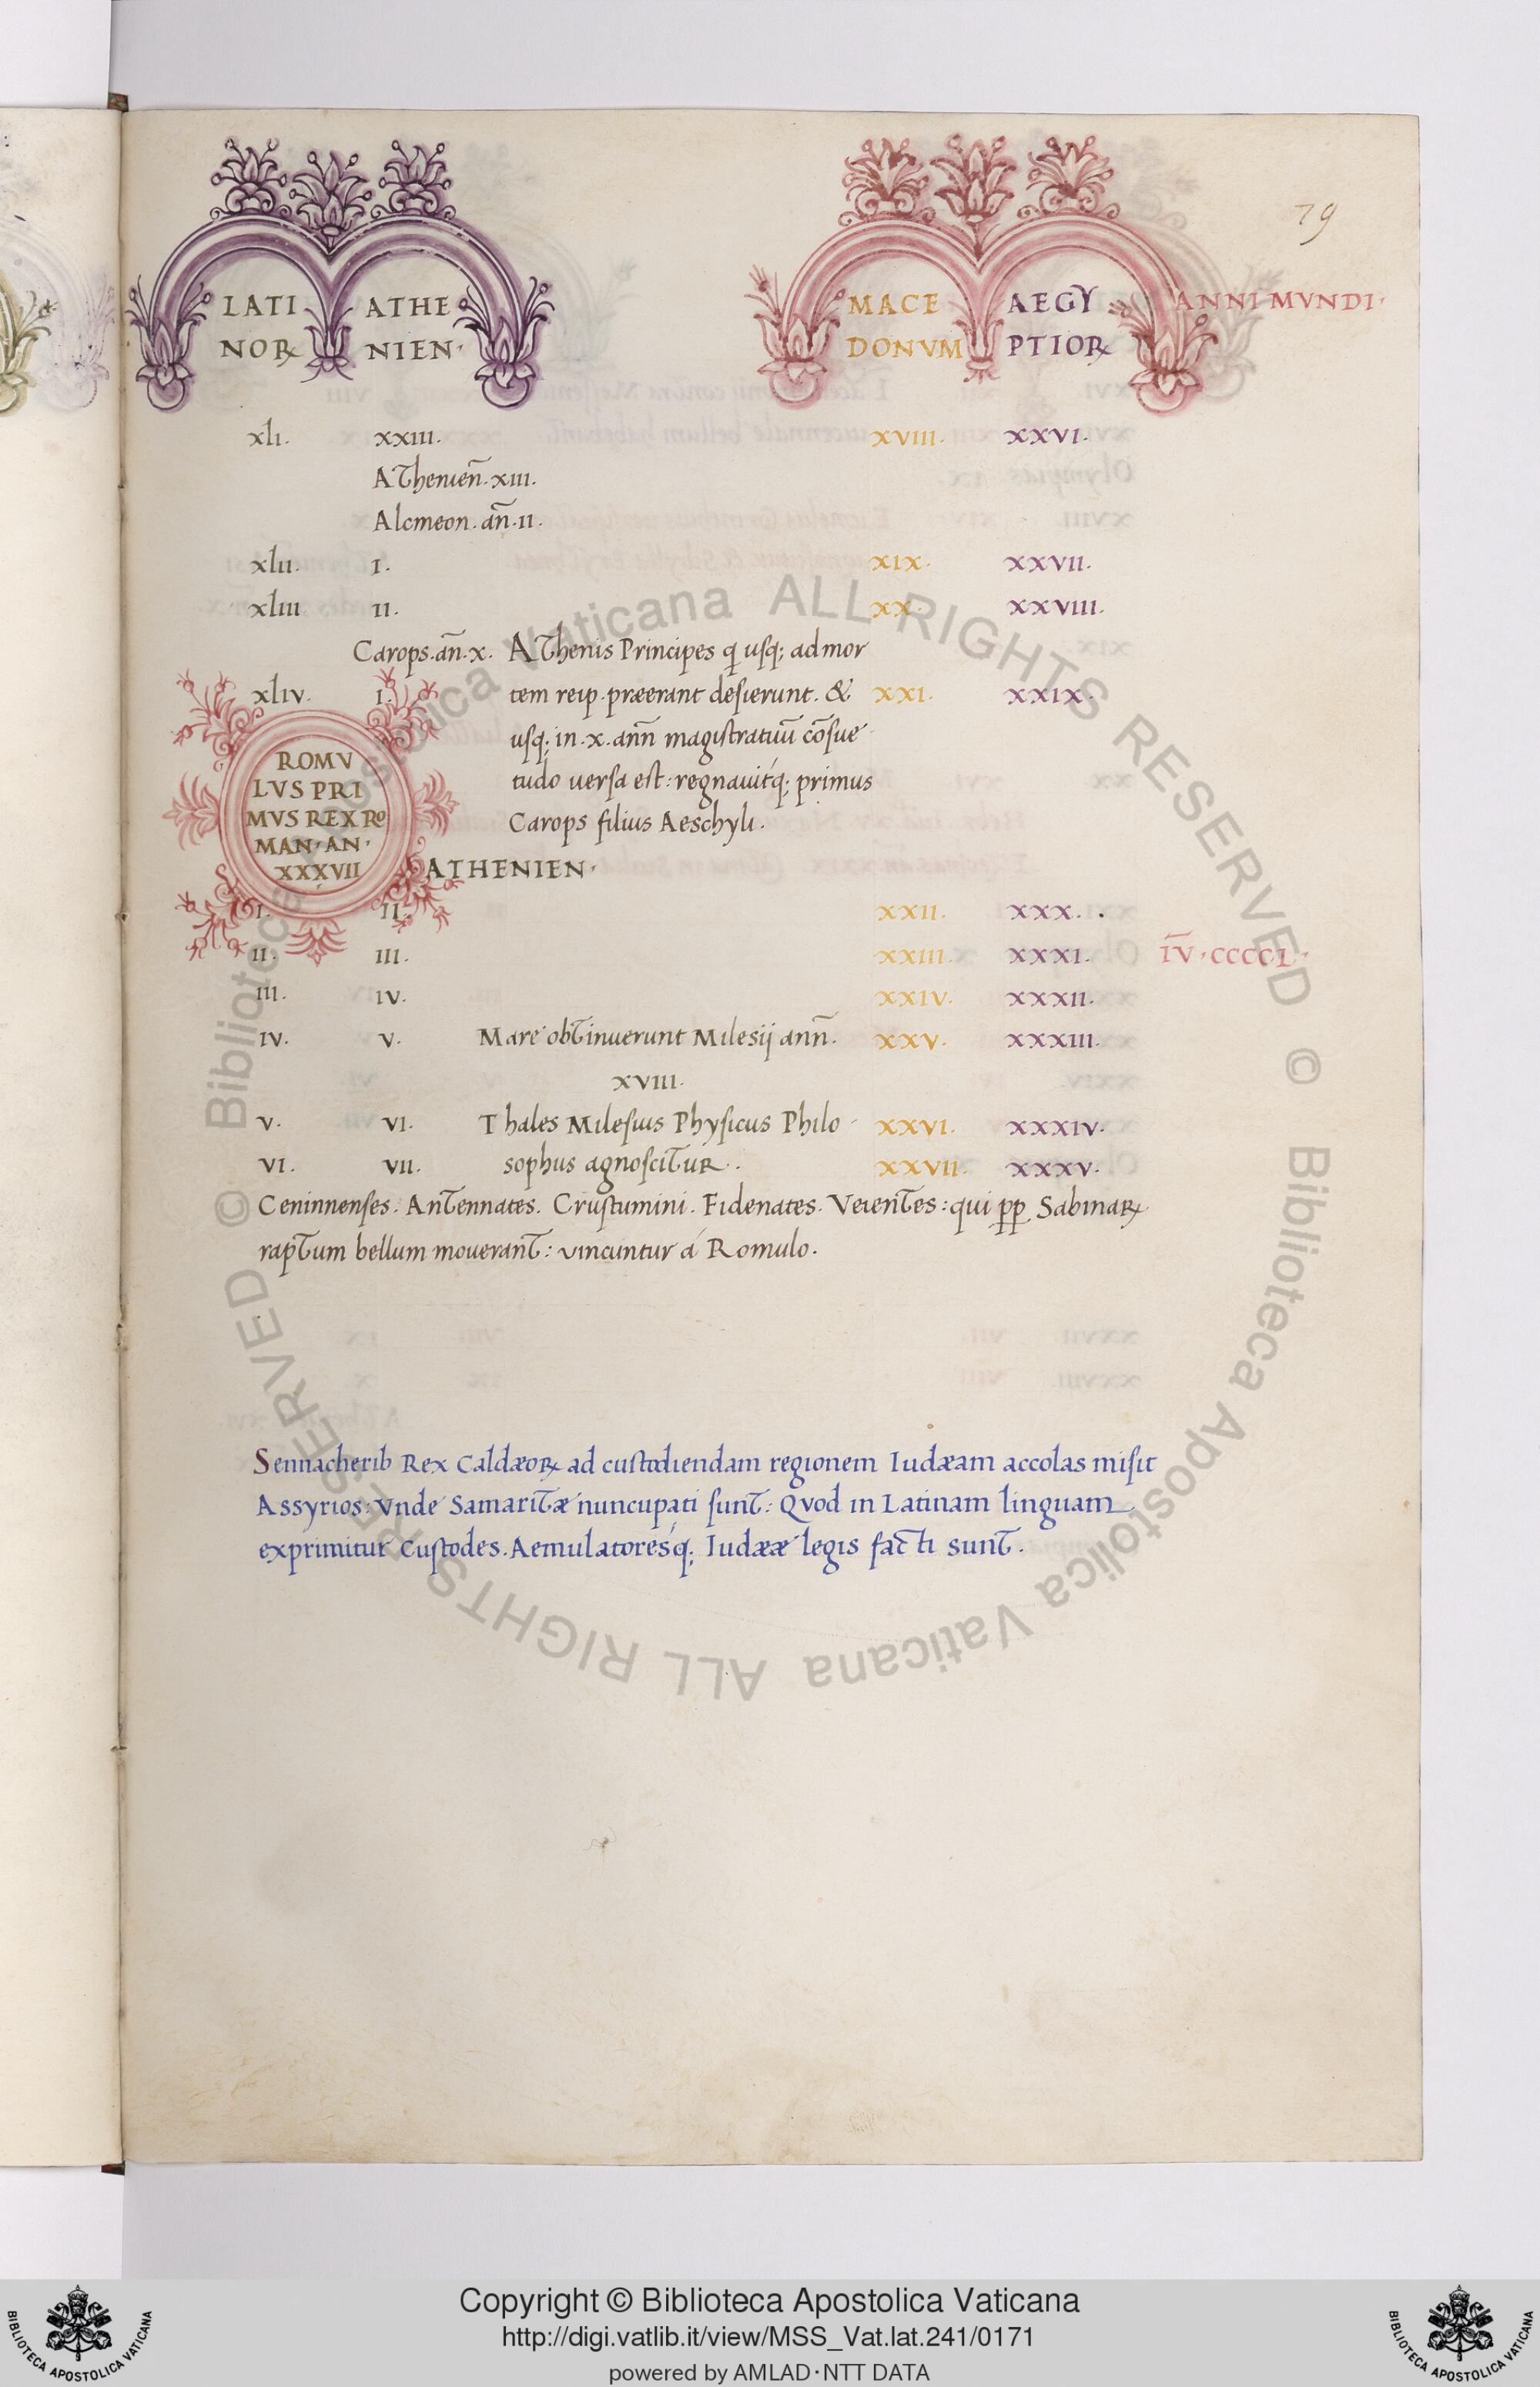 79
LATI ATHE MACE AEGY ANNI MVNDI·
NOR℞ NIEN· DONVM PTIOR℞
xli. xxiii. xviii. xxvi.
Athenien̄. xiii.
Alcmeon. an̄. ii.
xlii. i. xix. xxvii.
xliii ii. xx. xxviii.
Carops. an̄. x. Athenis Principes q̨ usq; ad mor
xliv. i. tem reip. præerant desierunt. & xxi. xxix.
usq; in. x. ann̄ magistratuū cōsue
tudo uersa est: regnauitq́; primus
Carops filius Aeschyli.
ROMV
LVS PRI
MVS REX RO
MAN· AN·
XXXVII
ATHENIEN·
i. ii. xxii. xxx.
ii. iii. xxiii. xxxi. IV̄·CCCCL·
iii. iv. xxiv. xxxii.
iv. v. Mare obtinuerunt Milesij ann̄. xxv. xxxiii.
xviii.
v. vi. Thales Milesius Physicus Philo xxvi. xxxiv.
vi. vii. sophus agnoscitur. xxvii. xxxv.
Ceninnenses. Antennates. Crustumini. Fidenates. Veientes: qui pp. Sabinar℞
raptum bellum mouerant: vincuntur á Romulo.
Sennacherib Rex Caldæor℞ ad custodiendam regionem Iudæam accolas misit
Assyrios: Vnde Samaritæ nuncupati sunt: Quod in Latinam linguam
exprimitur Custodes. Aemulatoresq́; Iudææ legis facti sunt.
© Biblioteca Apostolica Vaticana ALL RIGHTS RESERVED
© Biblioteca Apostolica Vaticana ALL RIGHTS RESERVED
Copyright © Biblioteca Apostolica Vaticana
http://digi.vatlib.it/view/MSS_Vat.lat.241/0171
powered by AMLAD·NTT DATA
BIBLIOTECA APOSTOLICA VATICANA
BIBLIOTECA APOSTOLICA VATICANA